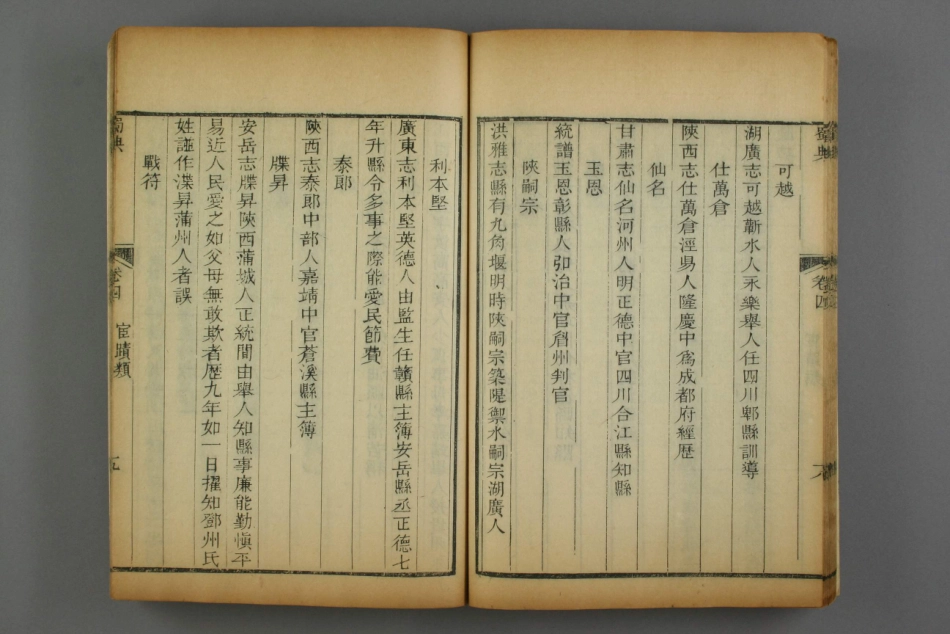 可越
湖廣志可越蘄水人永樂舉人任四川郫縣訓導
仕萬倉
陝西志仕萬倉涇易人隆慶中爲成都府經歷
仙名
甘肅志仙名河州人明正德中官四川合江縣知縣
玉恩
統譜玉恩彰縣人弘治中官眉州判官
陝嗣宗
洪雅志縣有九角堰明時陝嗣宗築隄禦水嗣宗湖廣人
蜀典
卷四
利本堅
廣東志利本堅英德人由監生任贛縣主簿安岳縣丞正德七
年升縣令多事之際能愛民節費
泰郥
陝西志泰郥中部人嘉靖中官蒼溪縣主簿
牒昇
安岳志牒昇陝西蒲城人正統間由舉人知縣事廉能勤愼平
易近人民愛之如父母無敢欺者歷九年如一日擢知鄧州氏
姓譜作渫昇蒲州人者誤
戰符
蜀典
卷四
宦蹟類